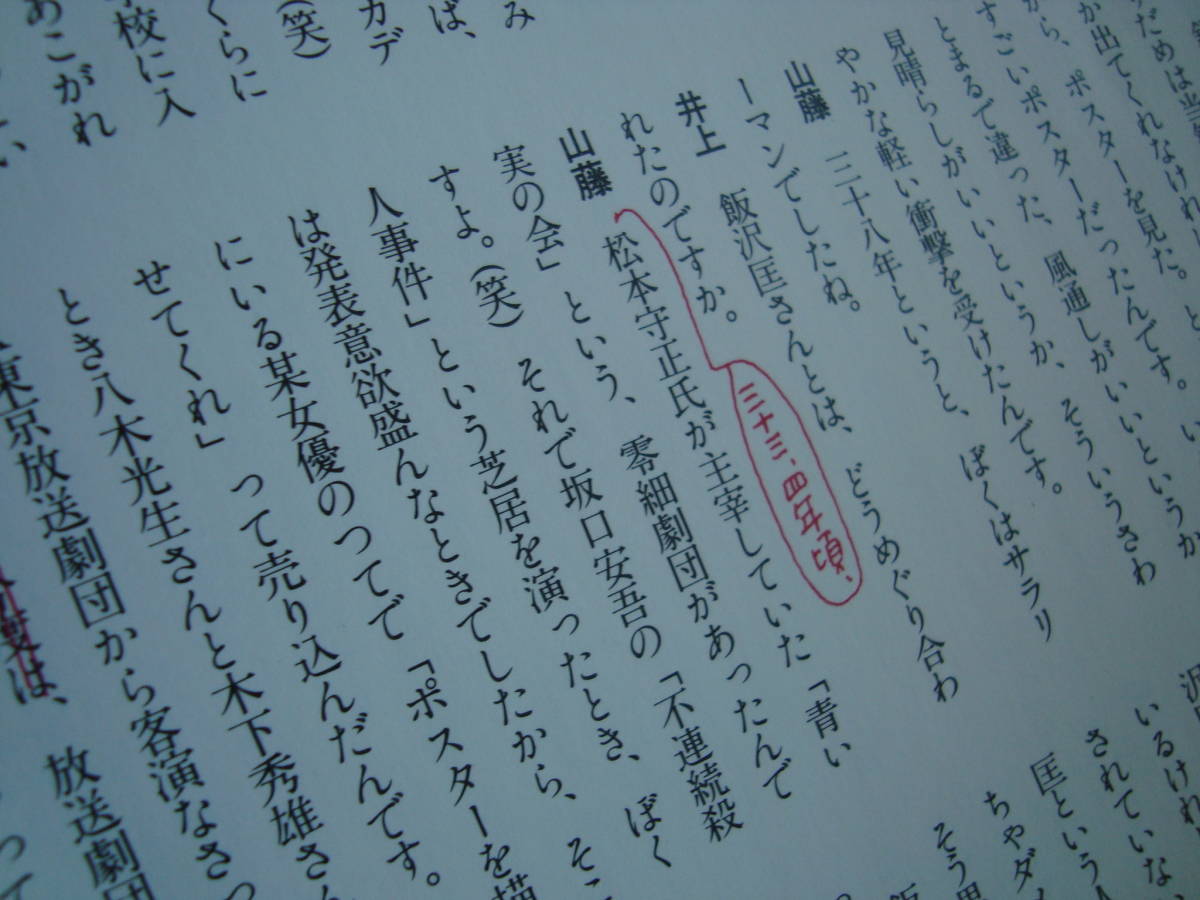 み
ば、
カデ
(笑)
くらに
校に入
あこがれ
い
だめは当
か出てくれなけれ
から、ポスターを見た。と
すごいポスターだったんです。い
とまるで違った、風通しがいいというか
見晴らしがいいというか、そういうさわ
やかな軽い衝撃を受けたんです。
山藤 三十八年というと、ぼくはサラリ
ーマンでしたね。
井上 飯沢匡さんとは、どうめぐり合わ
れたのですか。
三十三、四年頃、
山藤 松本守正氏が主宰していた「青い
実の会」という、零細劇団があったんで
すよ。(笑) それで坂口安吾の「不連続殺
人事件」という芝居を演ったとき、ぼく
は発表意欲盛んなときでしたから、そこ
にいる某女優のつてで「ポスターを描
せてくれ」って売り込んだんです。
とき八木光生さんと木下秀雄さん
東京放送劇団から客演なさっ
は、放送劇団
って
いるけれ
されていな
匡という
ちゃダメ
そう思
飯